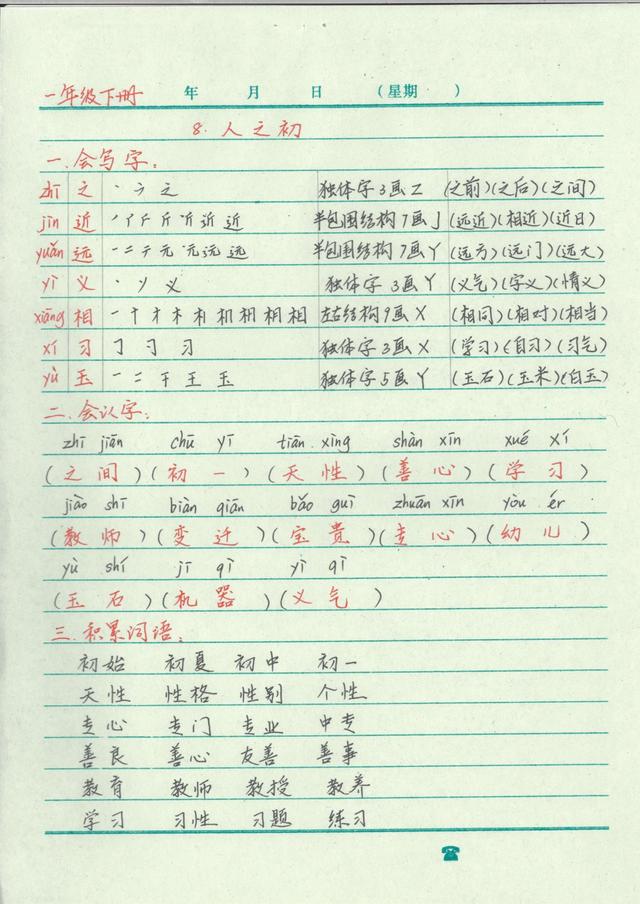 一年级下册 年 月 日 (星期 )
8. 人之初
一.会写字:
zhī 之 丶 ㇇ 之 独体字3画Z (之前)(之后)(之间)
jìn 近 近 半包围结构7画J (远近)(相近)(近日)
yuǎn 远 一 二 テ 元 元 沅 远 半包围结构7画Y (远方)(远门)(远大)
yì 义 丶 丷 义 独体字 3画Y (义气)(字义)(情义)
xiāng 相 一 十 才 木 相 相 左右结构9画X (相同)(相对)(相当)
xí 习 ㇆ 习 习 独体字3画X (学习)(自习)(习气)
yù 玉 一 二 干 王 玉 独体字5画Y (玉石)(玉米)(白玉)
二.会认字:
zhī jiān chū yī tiān xìng shàn xīn xué xí
(之间)(初一)(天性)(善心)(学习)
jiào shī biàn qiān bǎo guì zhuān xīn yòu ér
(教师)(变迁)(宝贵)(专心)(幼儿)
yù shí jī qì yì qì
(玉石)(机器)(义气)
三.积累词语:
初始 初夏 初中 初一
天性 性格 性别 个性
专心 专门 专业 中专
善良 善心 友善 善事
教育 教师 教授 教养
学习 习性 习题 练习